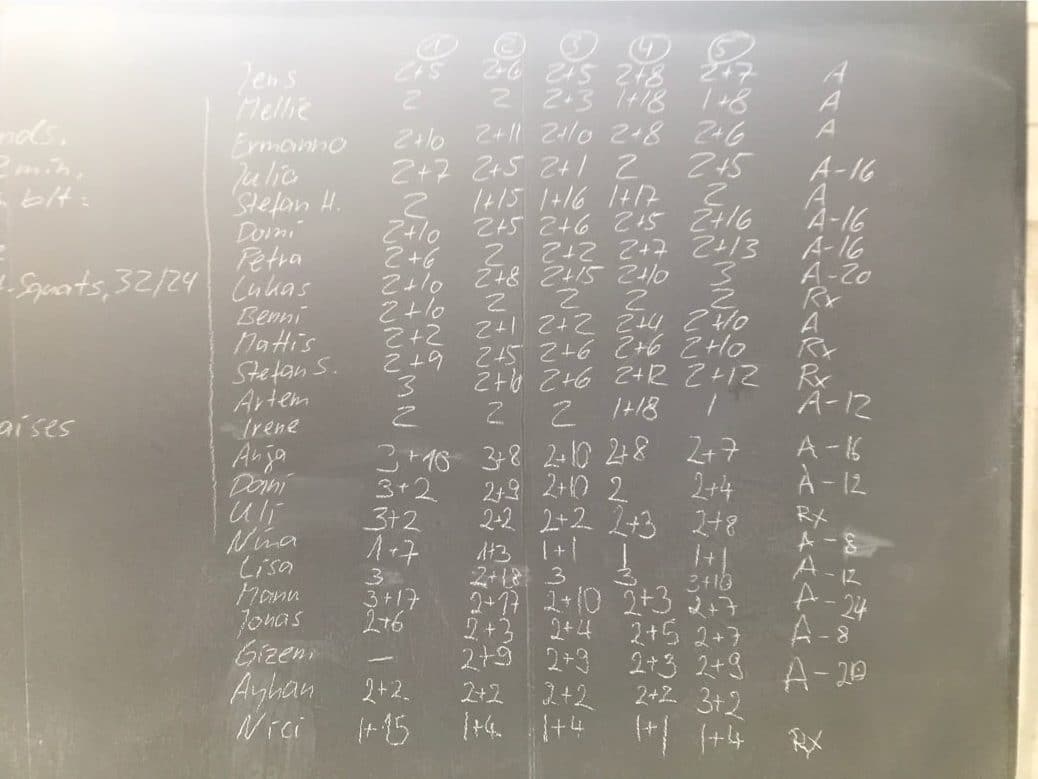 ① ② ③ ④ ⑤
Jens 2+5 2+6 2+5 2+8 2+7 A
Mellie 2 2 2+3 1+18 1+8 A
Ermanno 2+10 2+11 2+10 2+8 2+6 A
Julia 2+7 2+5 2+1 2 2+5 A-16
2min.
Stefan H. 2 1+15 1+16 1+17 2 A
Domi 2+10 2+5 2+6 2+5 2+16 A-16
Petra 2+6 2 2+2 2+7 2+13 A-16
-Squats, 32/24 Lukas 2+10 2+8 2+15 2+10 3 A-20
Benni 2+10 2 2 2 2 Rx
Mattis 2+2 2+1 2+2 2+4 2+10 A
Stefan S. 2+9 2+5 2+6 2+6 2+10 Rx
Artem 3 2+10 2+6 2+12 2+12 Rx
aises Irene 2 2 2 1+18 1 A-12
Anja 3+ 3+8 2+10 2+8 2+7 A-16
Dani 3+2 2+9 2+10 2 2+4 A-12
Uli 3+2 2+2 2+2 2+3 2+8 Rx
Nina 1+7 1+3 1+1 1 1+1 A-8
Lisa 3 2+18 3 3 3+10 A-12
Manu 3+17 2+17 2+10 2+3 2+7 A-24
Jonas 2+6 2+3 2+4 2+5 2+7 A-8
Gizem — 2+9 2+9 2+3 2+9 A-20
Ayhan 2+2 2+2 2+2 2+2 3+2
Nici 1+15 1+4 1+4 1+1 1+4 Rx